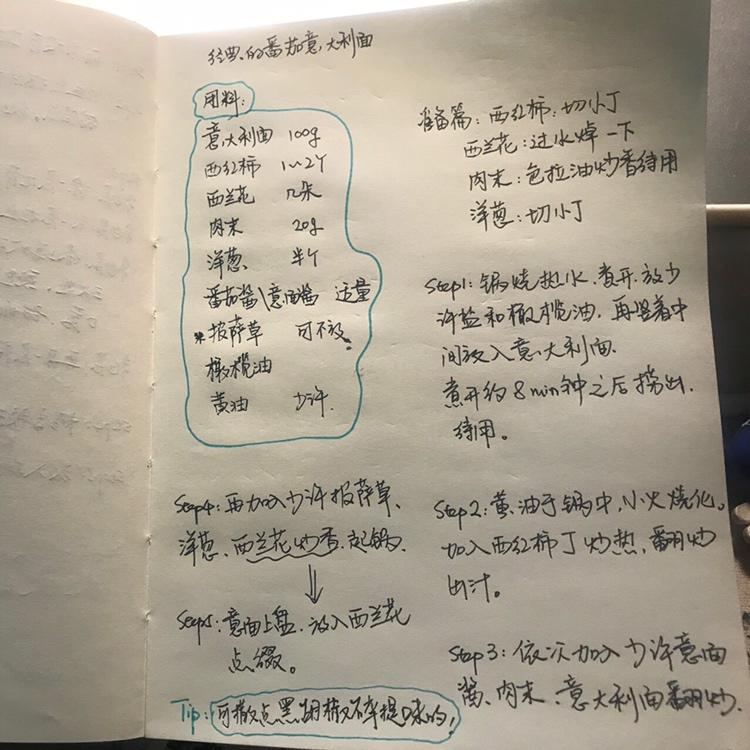 经典的番茄意大利面
用料:
意大利面 100g
西红柿 1~2个
西兰花 几朵
肉末 20g
洋葱 半个
番茄酱\意面酱 适量
*披萨草 可不放.
橄榄油
黄油 少许.
准备篇: 西红柿: 切小丁
西兰花: 过水焯一下
肉末: 色拉油炒香待用
洋葱: 切小丁
Step1: 锅烧热水, 煮开, 放少
许盐和橄榄油. 再竖着中
间放入意大利面.
煮开约8min钟之后捞出.
待用。
Step2: 黄油于锅中, 小火烧化。
加入西红柿丁炒热, 翻炒
出汁。
Step3: 依次加入少许意面
酱、肉末、意大利面翻炒.
Step4: 再加入少许披萨草、
洋葱、西兰花炒香. 起锅.
Step5: 意面上盘. 放入西兰花
点缀。
Tip: 可撒点黑胡椒碎提味的!